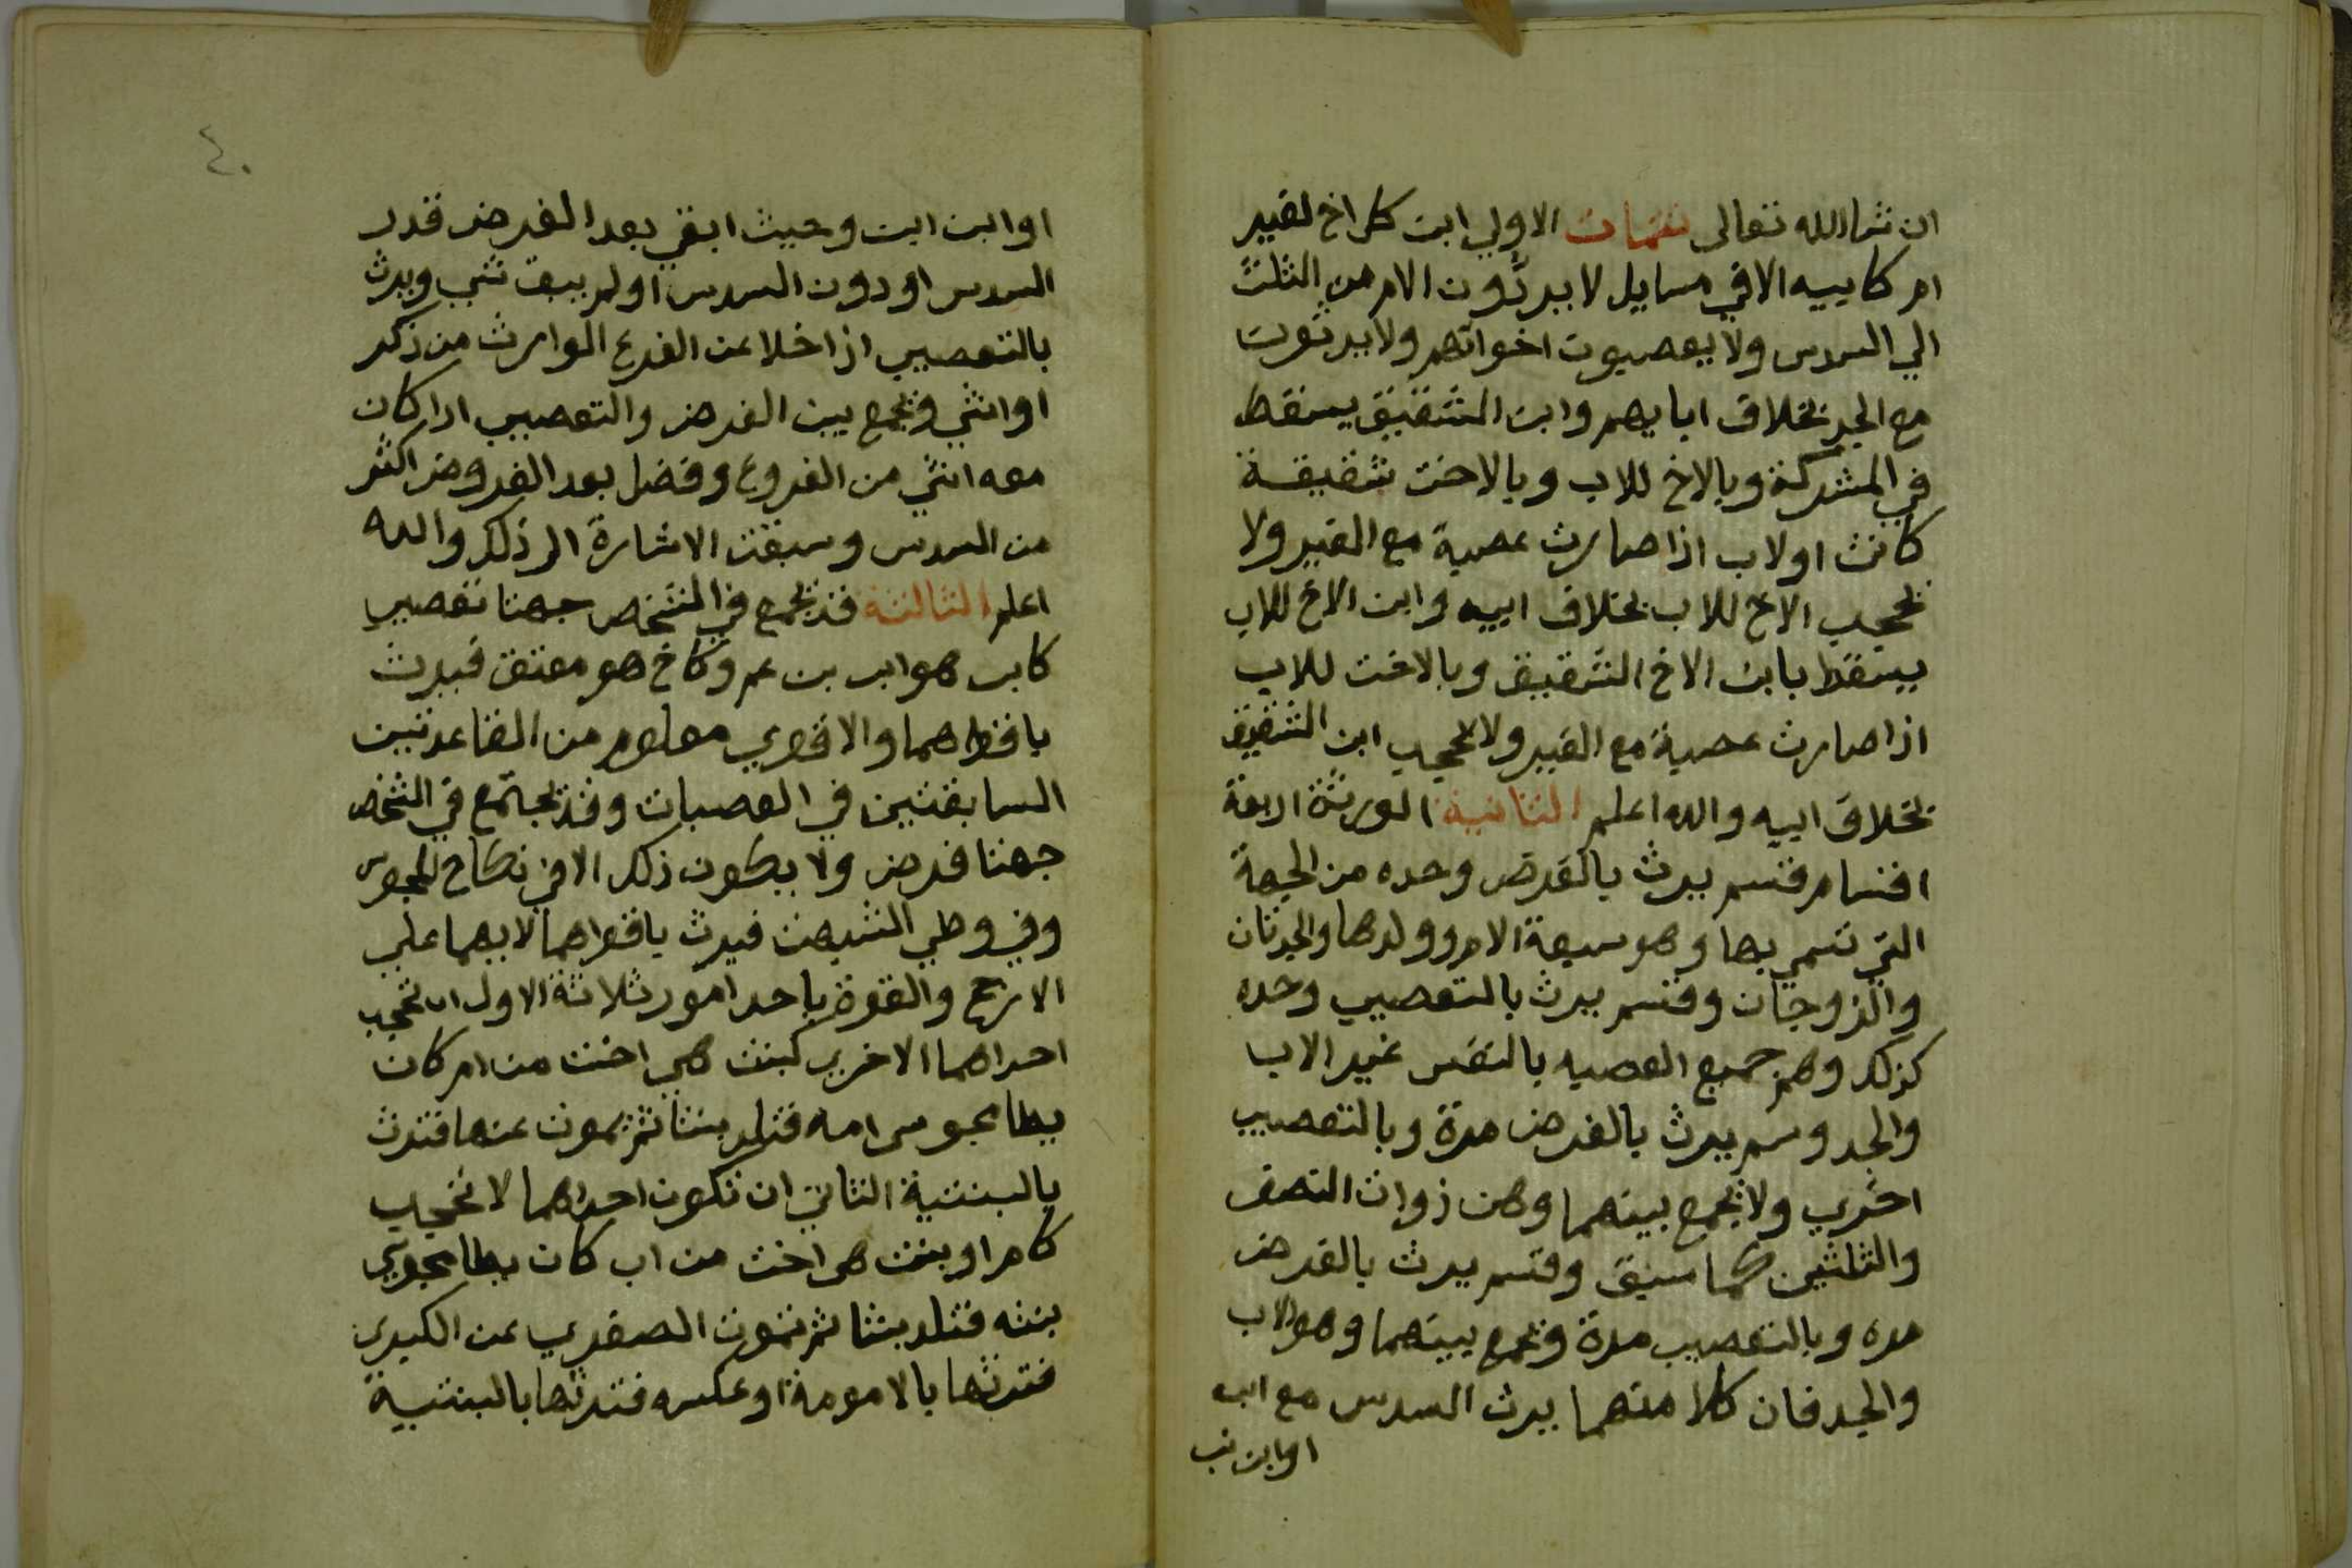 ان شاالله تعالى تتمات الاولي ابن كل اخ لغير
ام كابيه الا في مسايل لا يردّون الام من الثلث
الي السدس ولا يعصبون اخواتهم ولا يرثون
مع الجد بخلاف ابايهم وابن الشقيق يسقط
في المشركة وبالاخ للاب وبالاخت شقيقة
كانت او لاب اذا صارت عصبة مع الغير ولا
يحجب الاخ للاب بخلاف ابيه وابن الاخ للاب
يسقط بابن الاخ الشقيق وبالاخت للاب
اذا صارت عصبة مع الغير ولا يحجب ابن الشقيق
بخلاف ابيه والله اعلم الثانية الورثة اربعة
اقسام قسم يرث بالفرض وحده من الجهة
التي تسمي بها وهو سبعة الام وولدها والجدتان
والزوجان وقسم يرث بالتعصيب وحده
كذلك وهم جميع العصبه بالنفس غير الاب
والجد وسم يرث بالفرض مرة وبالتعصيب
اخري ولا يجمع بينهما وهن ذوات النصف
والثلثين كما سبق وقسم يرث بالفرض
مره وبالتعصيب مرة ويجمع بينهما وهو الاب
والجد فان كلا منهما يرث السدس مع ابن
او ابن
٤٠
او ابن ابن وحيث ابقي بعد الفرض قدر
السدس او دون السدس او لم يبق شي ويرث
بالتعصيب اذا خلا عن الفرع الوارث من ذكر
او انثي ويجمع بين الفرض والتعصيب اذا كان
معه انثي من الفروع وفضل بعد الفروض اكثر
من السدس وسبقت الاشارة الى ذلك والله
اعلم الثالثة قد يجمع في الشخص جهتا تعصيب
كابن هو ابن بن عم وكاخ هو معتق فيرث
باقواهما والاقوي معلوم من القاعدتين
السابقتين في العصبات وقد يجتمع في الشخص
جهتا فرض ولا يكون ذلك الا في نكاح المجوس
وفي وطي الشبهة فيرث باقواهما لا بهما علي
الارجح والقوة باحد امور ثلاثة الاول ان تحجب
احداهما الاخري كبنت هي اخت من ام كان
يطا مجوسى امه فتلد بنتا ثم يموت عنها فترث
بالبنتية الثاني ان تكون احداهما لا تحجب
كام او بنت هى اخت من اب كان يطا مجوسي
بنته فتلد بنتا ثم تموت الصغري عن الكبري
فترثها بالامومة او عكسه فترثها بالبنتية